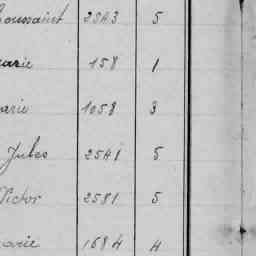 Toussaint 2543 5
Marie 158 1
Marie 1058 3
Jules 2541 5
Victor 2581 5
Marie 1684 4